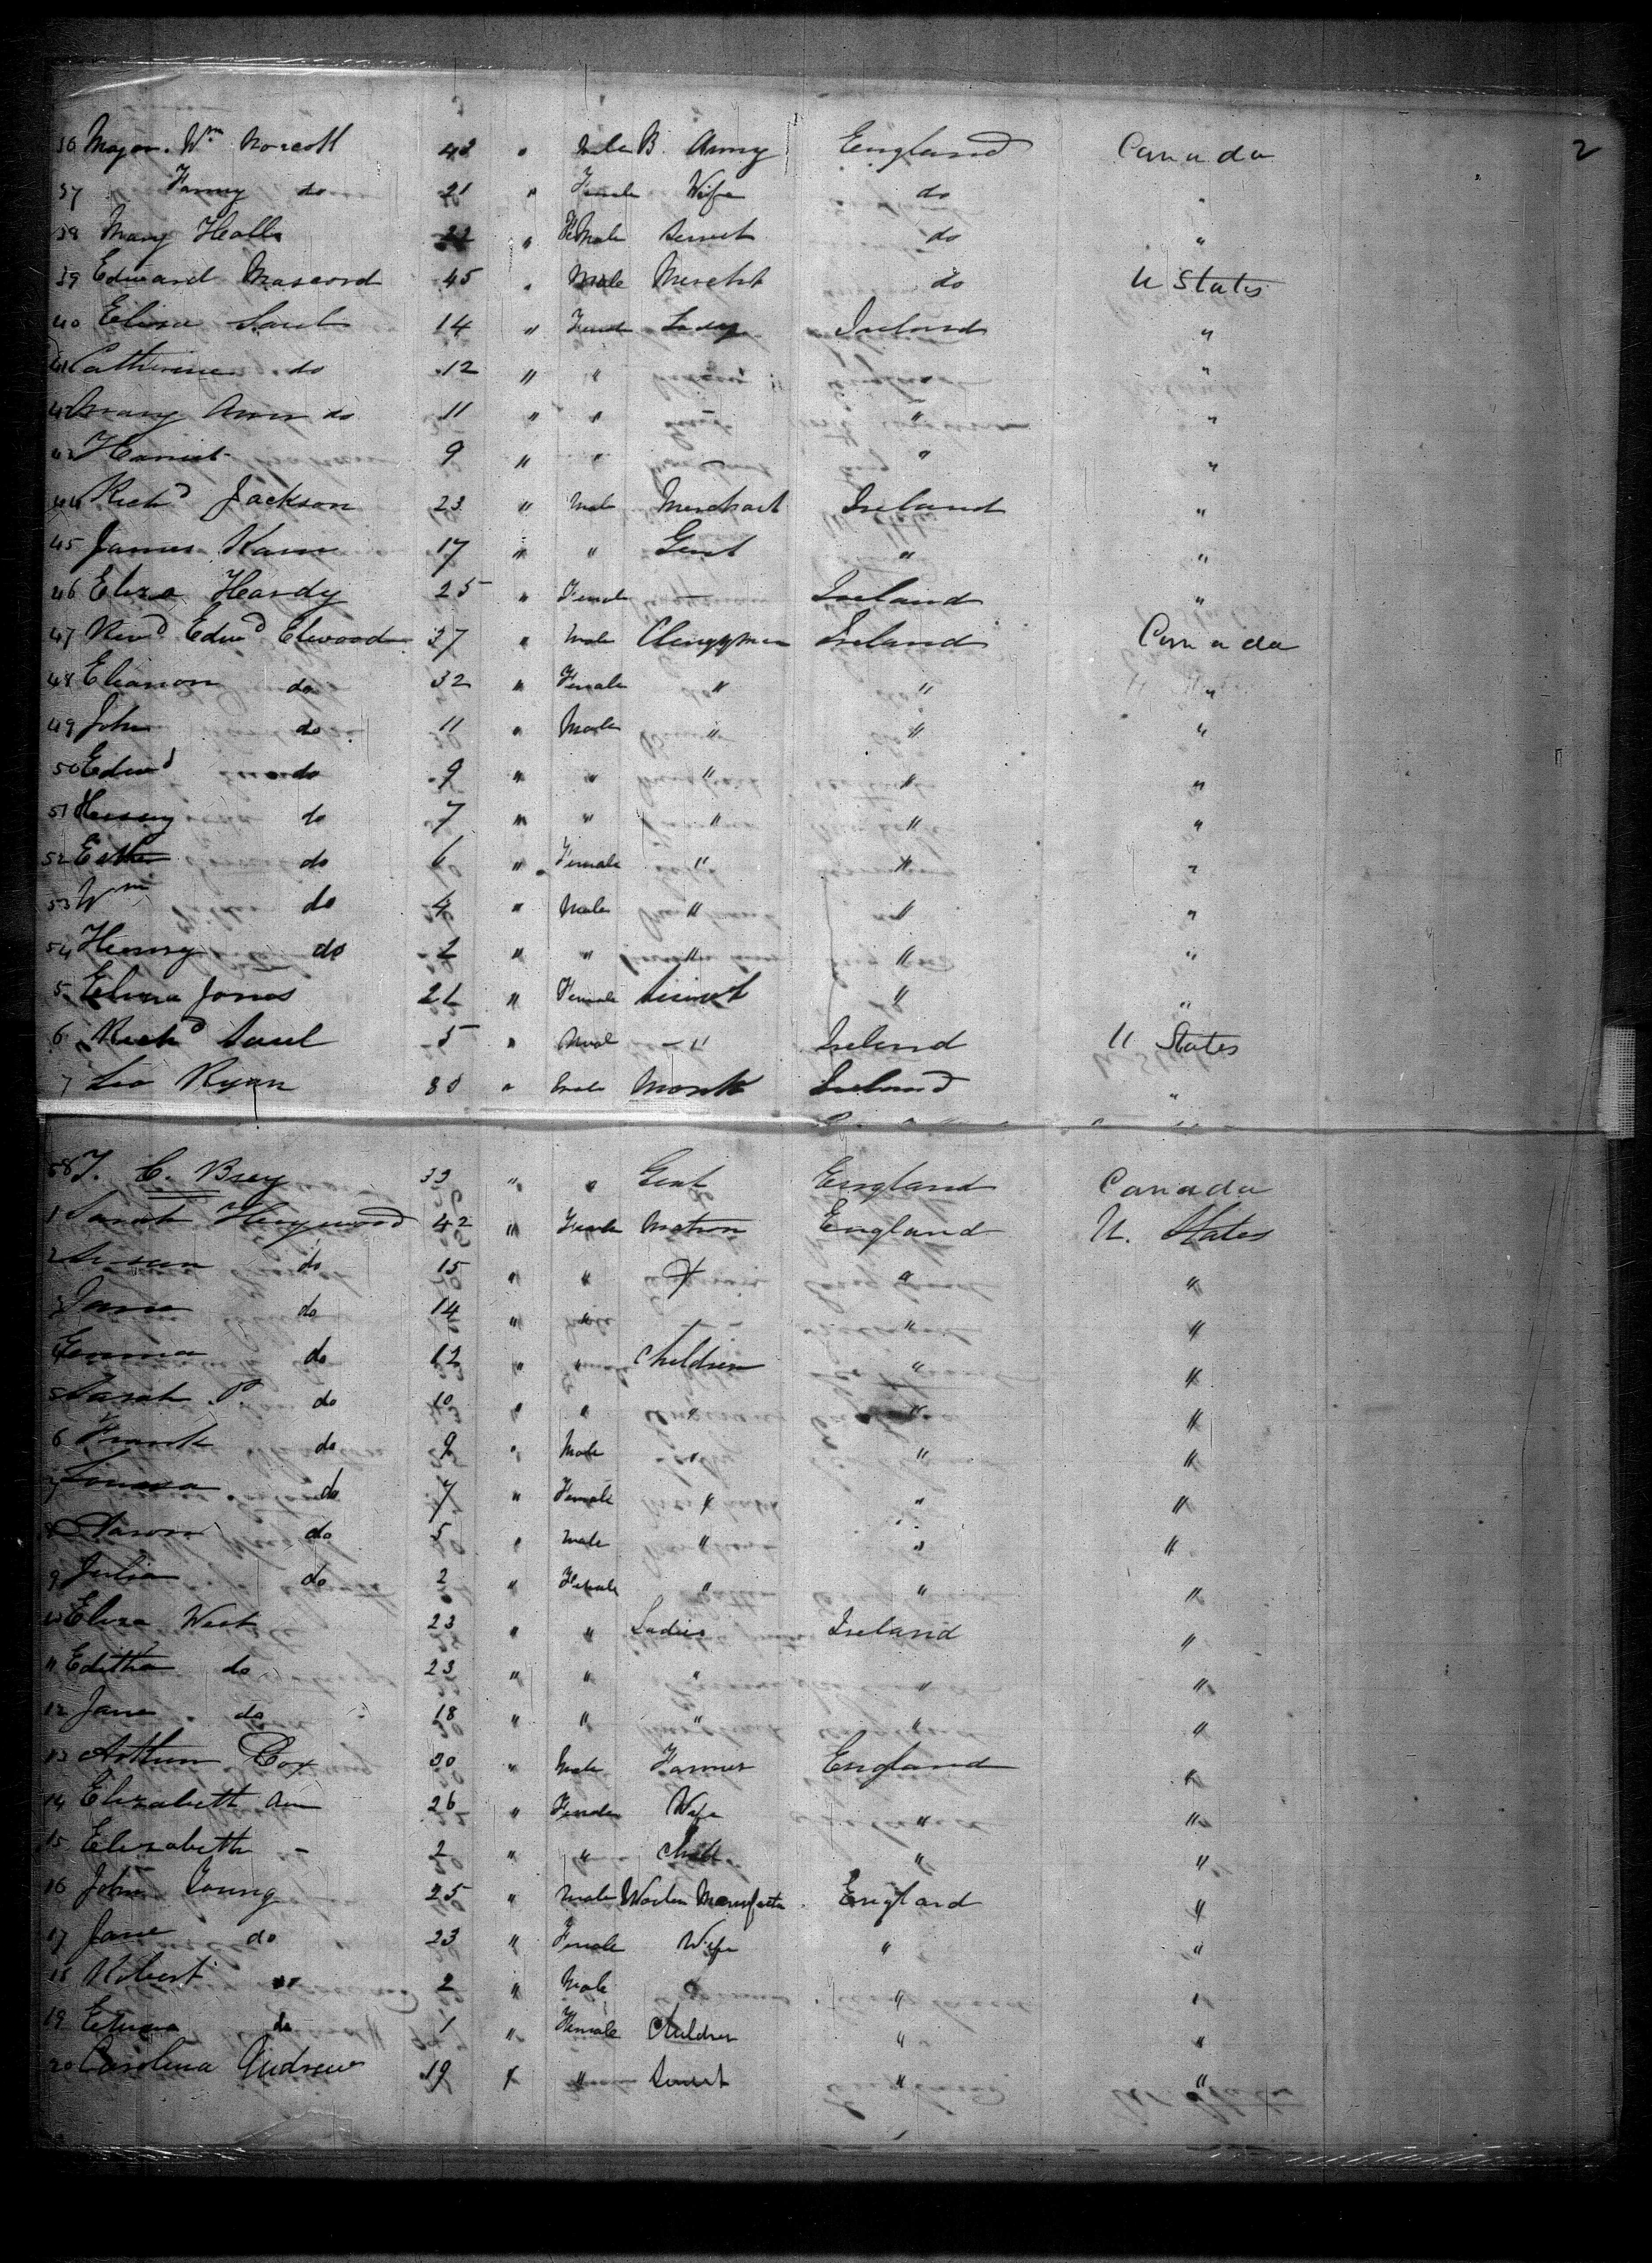 2
36 Major Wm Norcott 43 " Male B. Army England Canada
37 Fanny do 21 " Female Wife do "
38 Mary Halls " Female Servnt do "
39 Edward Mascord 45 " Male Mercht do U States
40 Eliza Saul 14 " Femal Lady Ireland "
41 Catherine do 12 " " "
42 Mary Ann do 11 " " " "
43 Harriet 9 " " " "
44 Richd Jackson 23 " Male Merchant Ireland "
45 James Kane 17 " " Gent " "
46 Eliza Hardy 25 " Femal Ireland "
47 Revd Edwd Elwood 37 " Male Clergyman Ireland Canada
48 Eleanor do 32 " Female " " "
49 John do 11 " Male " " "
50 Edwd do 9 " " " " "
51 do 7 " " " " "
52 Esther do 6 " Female " " "
53 Wm do 4 " Male " " "
54 Henry do 2 " " " " "
5 Eliza Jones 22 " Female Servnt " "
6 Richd Saul 5 " Male " Ireland U States
7 Leo Ryan " Male Monk Ireland "
58 T. C. Brey 33 " " Gent England Canada
1 Sarah Heywood 42 " Female Matron England U. States
2 Susan do 15 " " " "
3 Jane do 14 " " " "
Emma do 12 " " Children " "
5 Sarah P. do 10 " " " " "
6 Frank do 9 " Male " " "
7 Louisa do 7 " Female " " "
8 Aaron do 5 " Male " " "
9 Julia do 2 " Female " " "
10 Eliza West 23 " " Ladies Ireland "
11 Editha do 23 " " " "
12 Jane do 18 " " " " "
13 Arthur Cox 30 " Male Farmer England "
14 Elizabeth Ann 26 " Female Wife " "
15 Elizabeth - 2 " " Child " "
16 John Young 25 " Male Woolen Manufactr England "
17 Jane do 23 " Female Wife " "
18 Robert do 2 " Male " "
19 Emma do 1 " Female Children " "
20 Carolina Andrew 19 " " Servnt " "